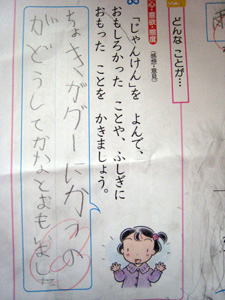 どんな ことが…
心・意欲・態度
(感想・意見)
「じゃんけん」を よんで、
おもしろかった ことや、ふしぎに
おもった ことを かきましょう。
ちょきがグーにかつの
がどうしてかなとおもいました